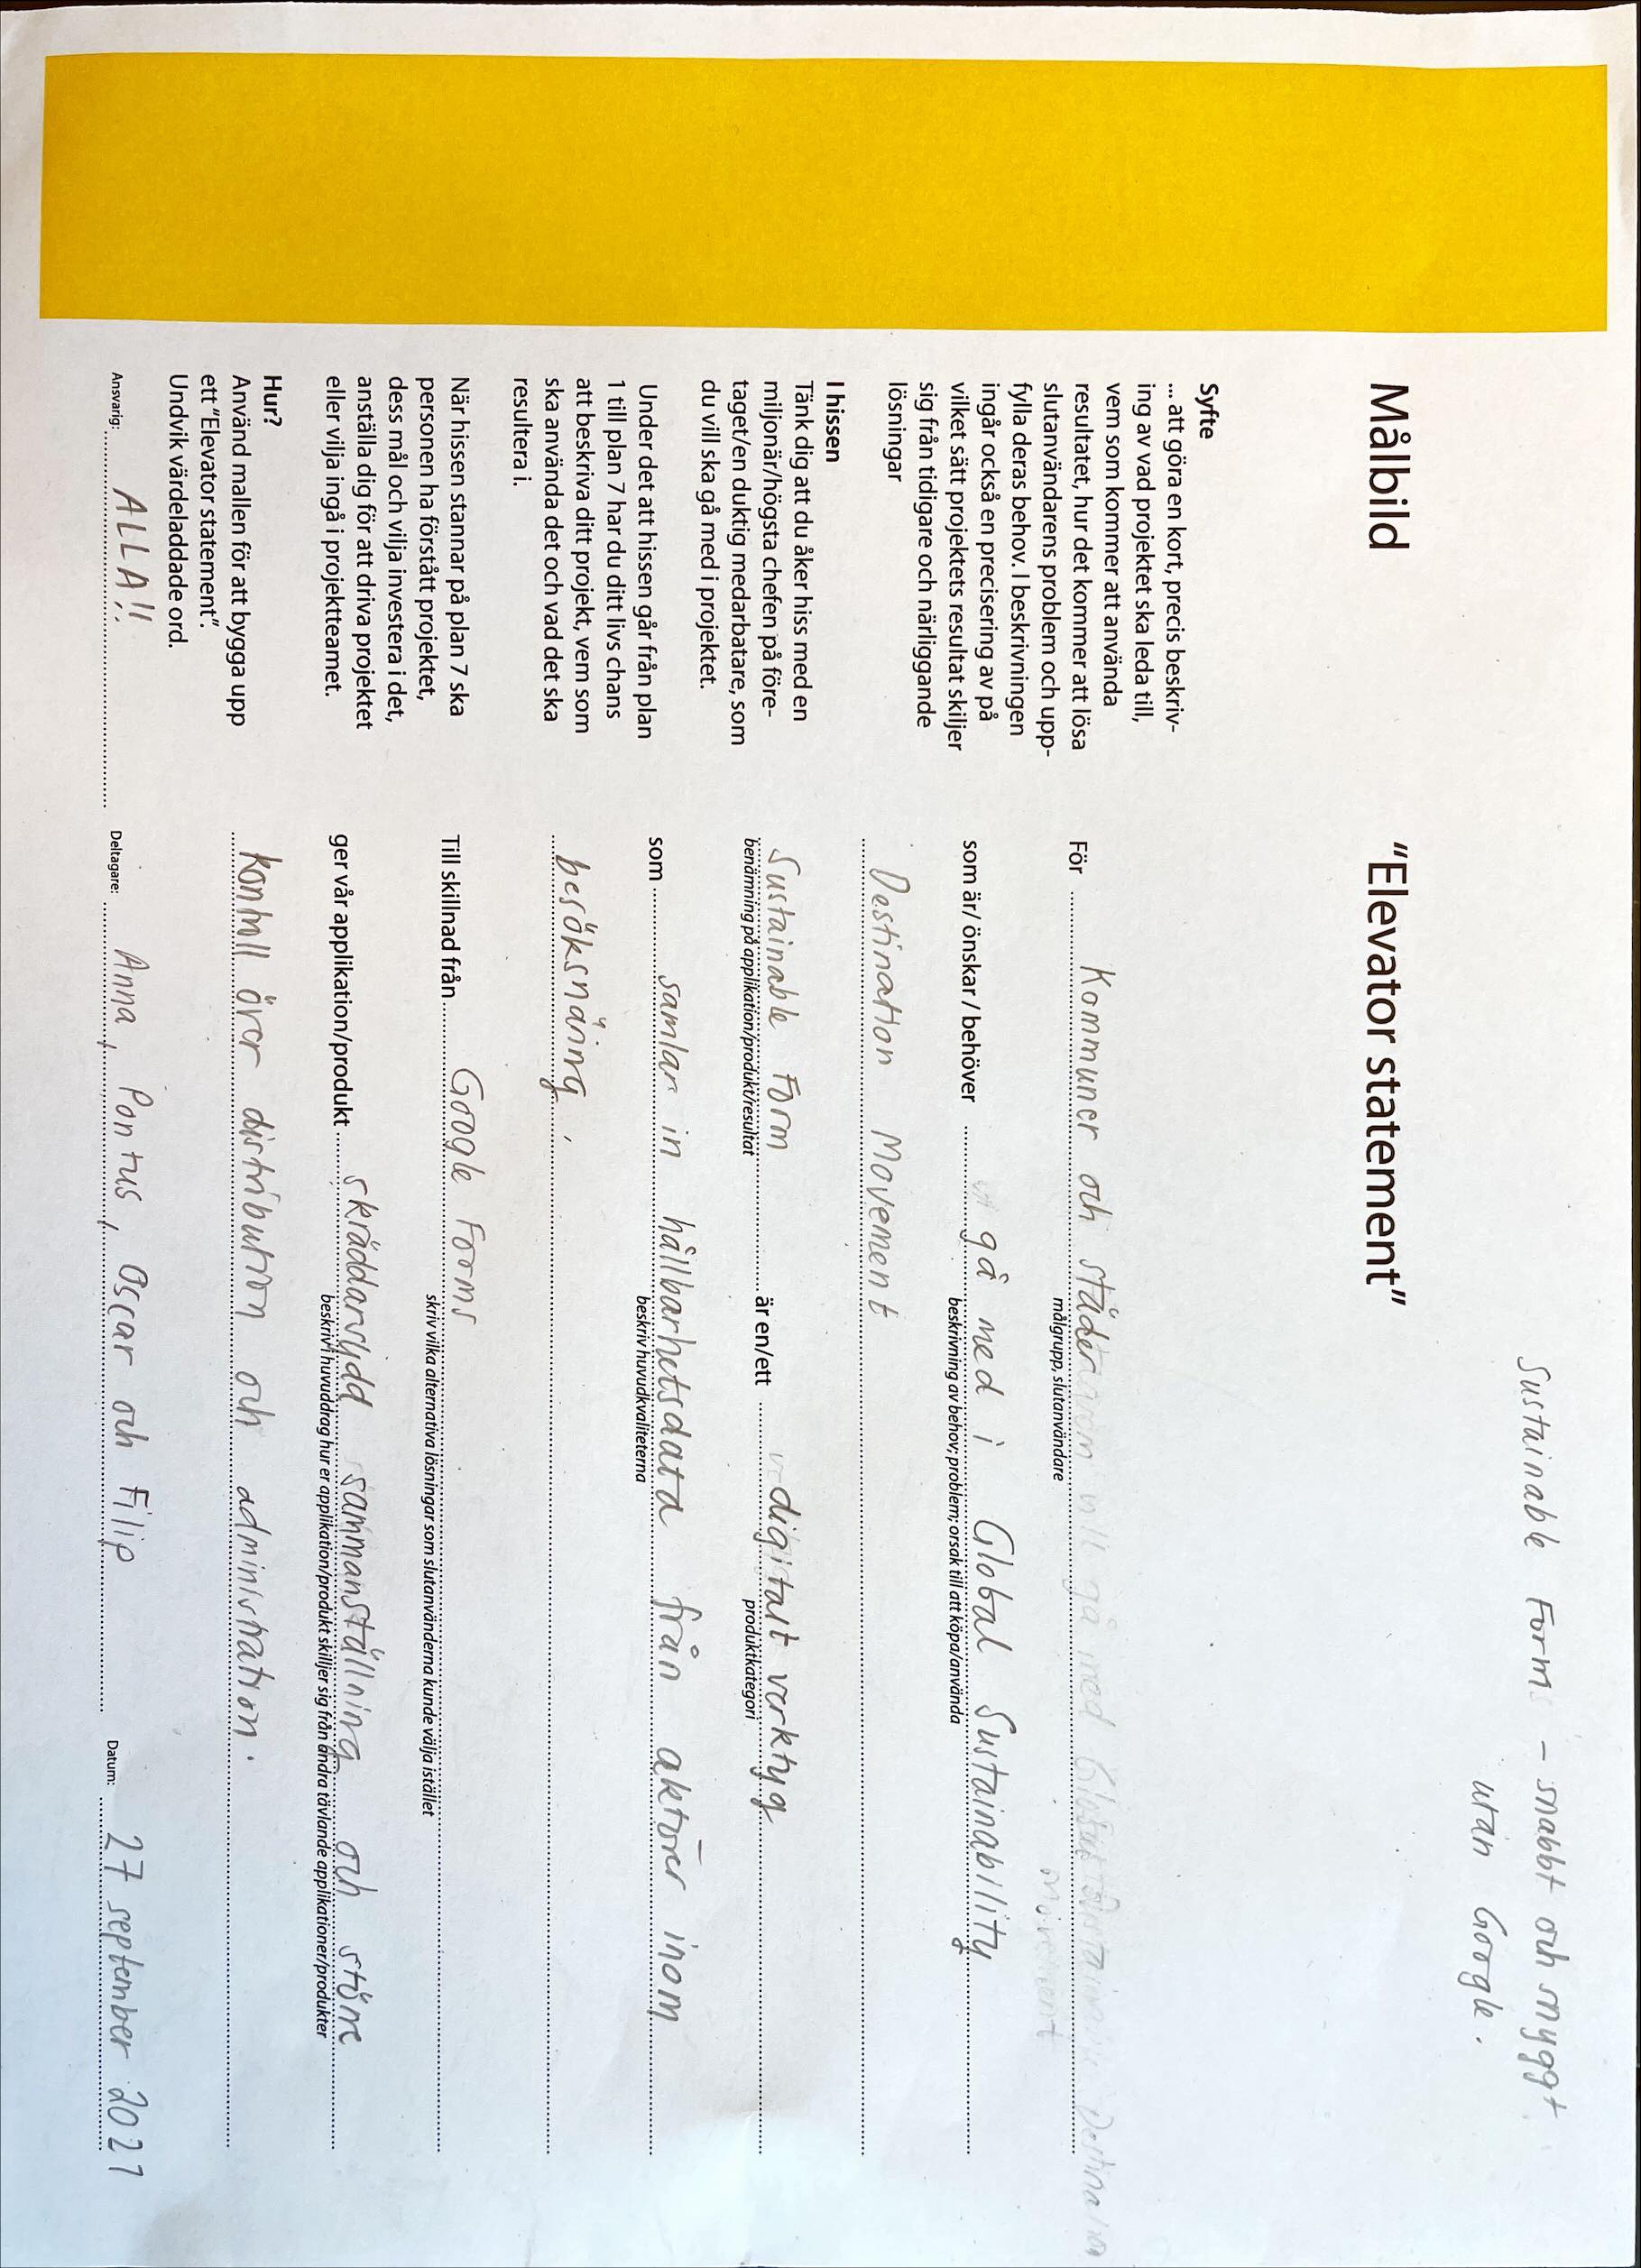 Sustainable Form - snabbt och snyggt
utan Google.
Målbild
"Elevator statement"
Syfte
... att göra en kort, precis beskriv-
ing av vad projektet ska leda till,
vem som kommer att använda
resultatet, hur det kommer att lösa
slutanvändarens problem och upp-
fylla deras behov. I beskrivningen
ingår också en precisering av på
vilket sätt projektets resultat skiljer
sig från tidigare och närliggande
lösningar
I hissen
Tänk dig att du åker hiss med en
miljonär/högsta chefen på före-
taget/en duktig medarbatare, som
du vill ska gå med i projektet.
Under det att hissen går från plan
1 till plan 7 har du ditt livs chans
att beskriva ditt projekt, vem som
ska använda det och vad det ska
resultera i.
När hissen stannar på plan 7 ska
personen ha förstått projektet,
dess mål och vilja investera i det,
anställa dig för att driva projektet
eller vilja ingå i projektteamet.
Hur?
Använd mallen för att bygga upp
ett "Elevator statement".
Undvik värdeladdade ord.
För Kommuner och städer
målgrupp, slutanvändare
som är/ önskar / behöver gå med i Global Sustainability
beskrivning av behov; problem; orsak till att köpa/använda
Destination Movement
Sustainable Form är en/ett digitalt verktyg
benämning på applikation/produkt/resultat produktkategori
som samlar in hållbarhetsdata från aktörer inom
beskriv huvudkvaliteterna
besöksnäring,
Till skillnad från Google Forms
skriv vilka alternativa lösningar som slutanvänderna kunde välja istället
ger vår applikation/produkt skräddarsydd sammanställning och större
beskrivi huvuddrag hur er applikation/produkt skilljer sig från andra tävlande applikationer/produkter
kontroll över distribution och administration.
Ansvarig: ALLA!!
Deltagare: Anna, Pontus, Oscar och Filip
Datum: 27 september 2021